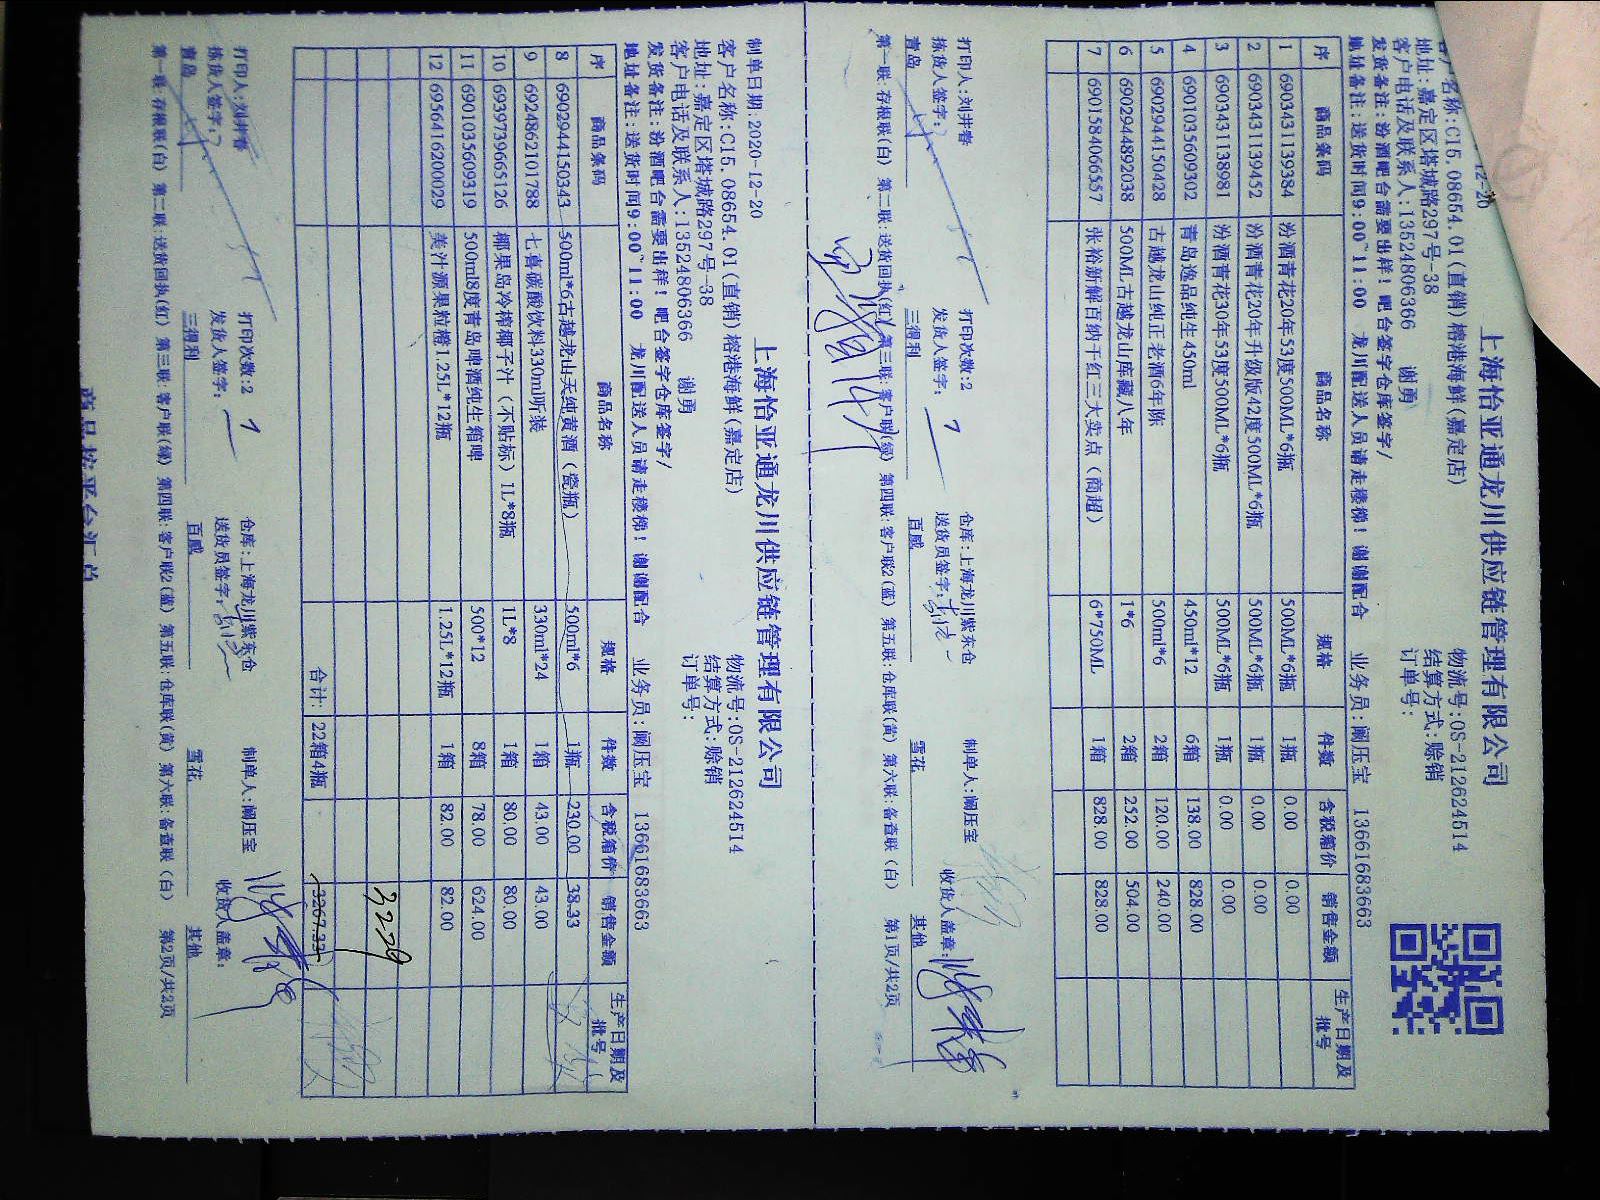 上海怡亚通龙川供应链管理有限公司
12-20
物流号:OS-212624514
客户名称:C15.08654.01(直销)榕港海鲜(嘉定店)
结算方式:赊销
地址:嘉定区塔城路297号-38
订单号:
客户电话及联系人:13524806366 谢勇
发货备注:汾酒吧台需要出样!吧台签字仓库签字/
地址备注:送货时间9:00~11:00 龙川配送人员请走楼梯!谢谢配合 业务员:阚压宝 13661683663
序 商品条码 商品名称 规格 件数 含税箱价 销售金额 生产日期及批号
1 6903431139384 汾酒青花20年53度500ML*6瓶 500ML*6瓶 1瓶 0.00 0.00
2 6903431139452 汾酒青花20年升级版42度500ML*6瓶 500ML*6瓶 1瓶 0.00 0.00
3 6903431138981 汾酒青花30年53度500ML*6瓶 500ML*6瓶 1瓶 0.00 0.00
4 6901035609302 青岛逸品纯生450ml 450ml*12 6箱 138.00 828.00
5 6902944150428 古越龙山纯正老酒6年陈 500ml*6 2箱 120.00 240.00
6 6902944892038 500ML古越龙山库藏八年 1*6 2箱 252.00 504.00
7 6901584066557 张裕新解百纳干红三大卖点(商超) 6*750ML 1箱 828.00 828.00
打印人:刘井春 打印次数:2 仓库:上海龙川紫东仓 制单人:阚压宝
拣货人签字: 发货人签字: 送货员签字: 收货人盖章:
青岛 三得利 百威 雪花 其他
第一联:存根联(白) 第二联:送货回执(红) 第三联:客户联(绿) 第四联:客户联2(蓝) 第五联:仓库联(黄) 第六联:备查联(白) 第1页/共2页
上海怡亚通龙川供应链管理有限公司
制单日期:2020-12-20 物流号:OS-212624514
客户名称:C15.08654.01(直销)榕港海鲜(嘉定店) 结算方式:赊销
地址:嘉定区塔城路297号-38 订单号:
客户电话及联系人:13524806366 谢勇
发货备注:汾酒吧台需要出样!吧台签字仓库签字/
地址备注:送货时间9:00~11:00 龙川配送人员请走楼梯!谢谢配合 业务员:阚压宝 13661683663
序 商品条码 商品名称 规格 件数 含税箱价 销售金额 生产日期及批号
8 6902944150343 500ml*6古越龙山天纯黄酒(瓷瓶) 500ml*6 1瓶 230.00 38.33
9 6924862101788 七喜碳酸饮料330ml听装 330ml*24 1箱 43.00 43.00
10 6939739665126 椰果岛冷榨椰子汁(不贴标)1L*8瓶 1L*8 1箱 80.00 80.00
11 6901035609319 500ml8度青岛啤酒纯生箱啤 500*12 8箱 78.00 624.00
12 6956416200029 美汁源果粒橙1.25L*12瓶 1.25L*12瓶 1箱 82.00 82.00
3229
合计: 22箱4瓶 3267.33
打印人:刘井春 打印次数:2 仓库:上海龙川紫东仓 制单人:阚压宝
拣货人签字: 发货人签字: 送货员签字: 收货人盖章:
青岛 三得利 百威 雪花 其他
第一联:存根联(白) 第二联:送货回执(红) 第三联:客户联(绿) 第四联:客户联2(蓝) 第五联:仓库联(黄) 第六联:备查联(白) 第2页/共2页
商品按平台汇总